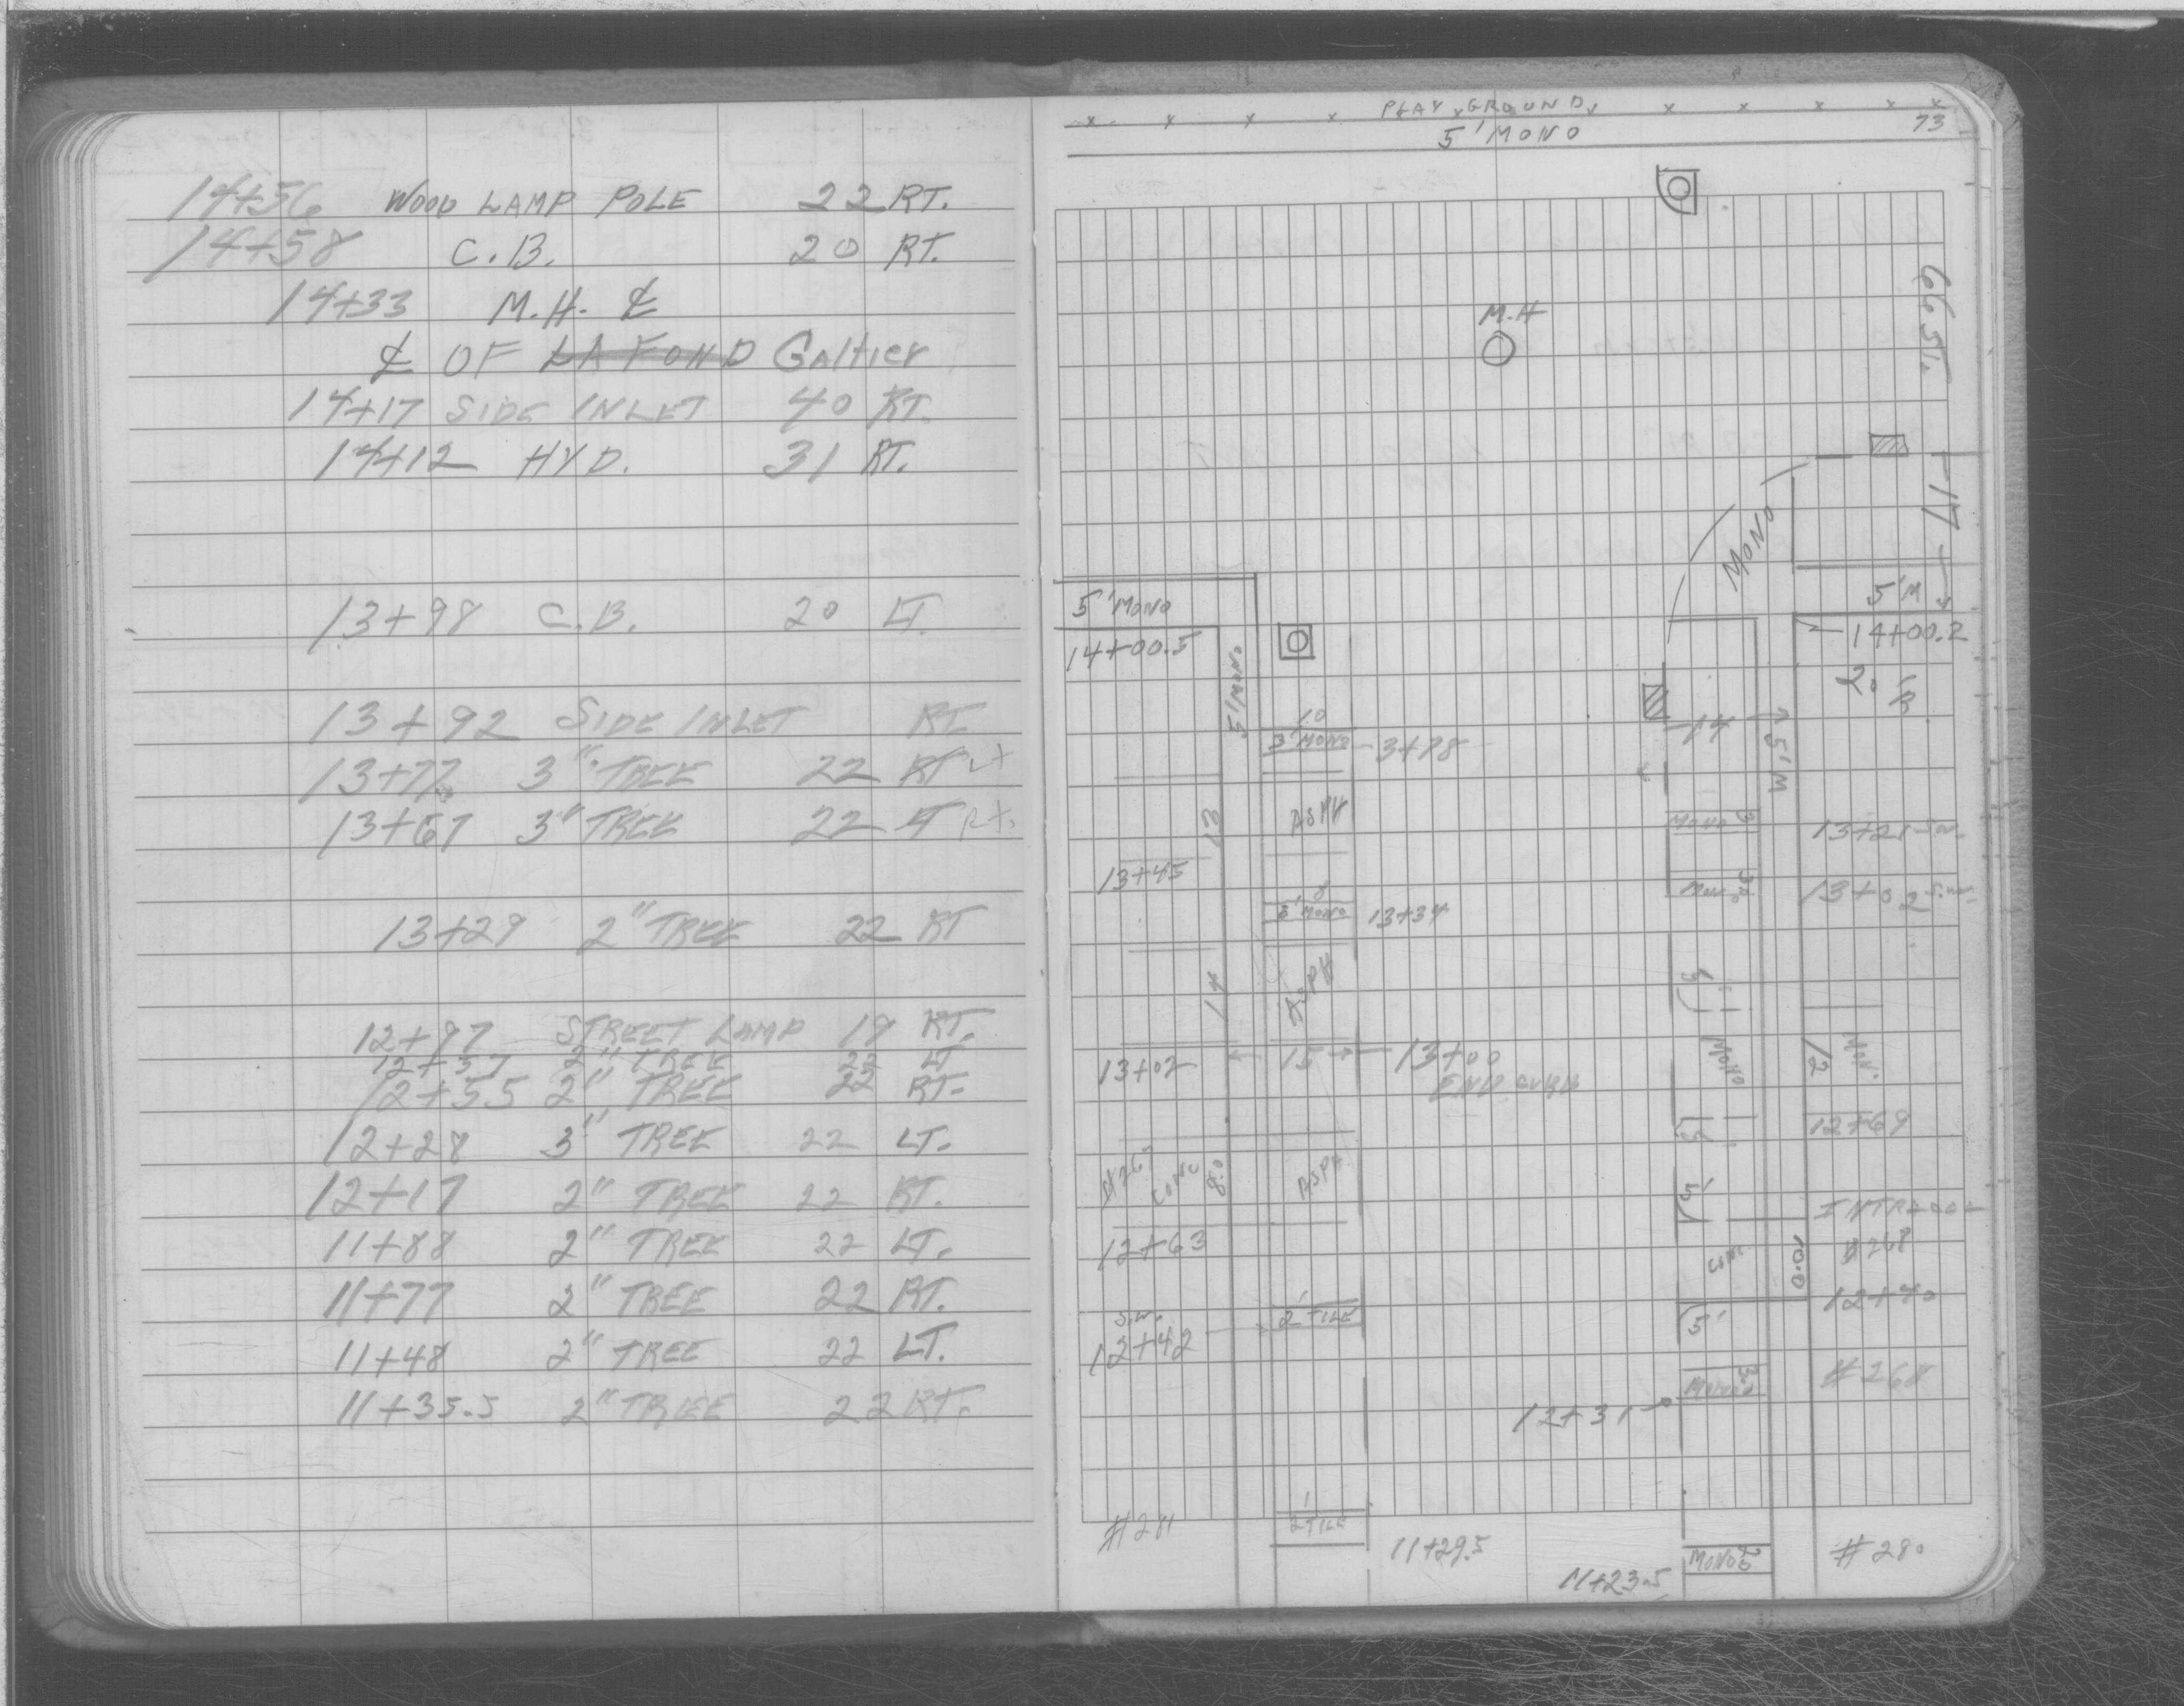 14+56 WOOD LAMP POLE 22 RT.
14+58 C.B. 20 RT.
14+33 M.H. ℄
℄ OF LA FOND Galtier
14+17 SIDE INLET 40 RT.
14+12 HYD. 31 RT.
13+98 C.B. 20 LT.
13+92 SIDE INLET RT.
13+77 3" TREE 22 RT Lt
13+67 3" TREE 22 Rt.
13+29 2" TREE 22 RT
12+97 STREET LAMP 19 RT.
12+57 2" TREE 22 LT
12+55 2" TREE 22 RT.
12+28 3" TREE 22 LT.
12+17 2" TREE 22 RT.
11+88 2" TREE 22 LT.
11+77 2" TREE 22 RT.
11+48 2" TREE 22 LT.
11+35.5 2" TREE 22 RT.
PLAY GROUND
5' MONO
73
M.H
66 ST.
17
MONO
5' MONO
14+00.5
5' MONO
5' M
14+00.2
20
10
3' MONO 3+78
14
5' M
13
ASPH
MONO 3
13+21 S.W.
13+45
8
3' MONO 13+34
MONO 3
13+02 S.W.
14
ASPH
5
MONO
12
MON.
13+02
15
13+00
END CURB
5
12+69
#267
CONC
8.0
ASPH
5'
12+63
CONC.
10.0
#268
12+40
S.W.
12+42
2' TILE
5'
12+31
MONO 3
#268
#281
2' TILE
11+29.5
11+23.5
MONO 2.5
#280